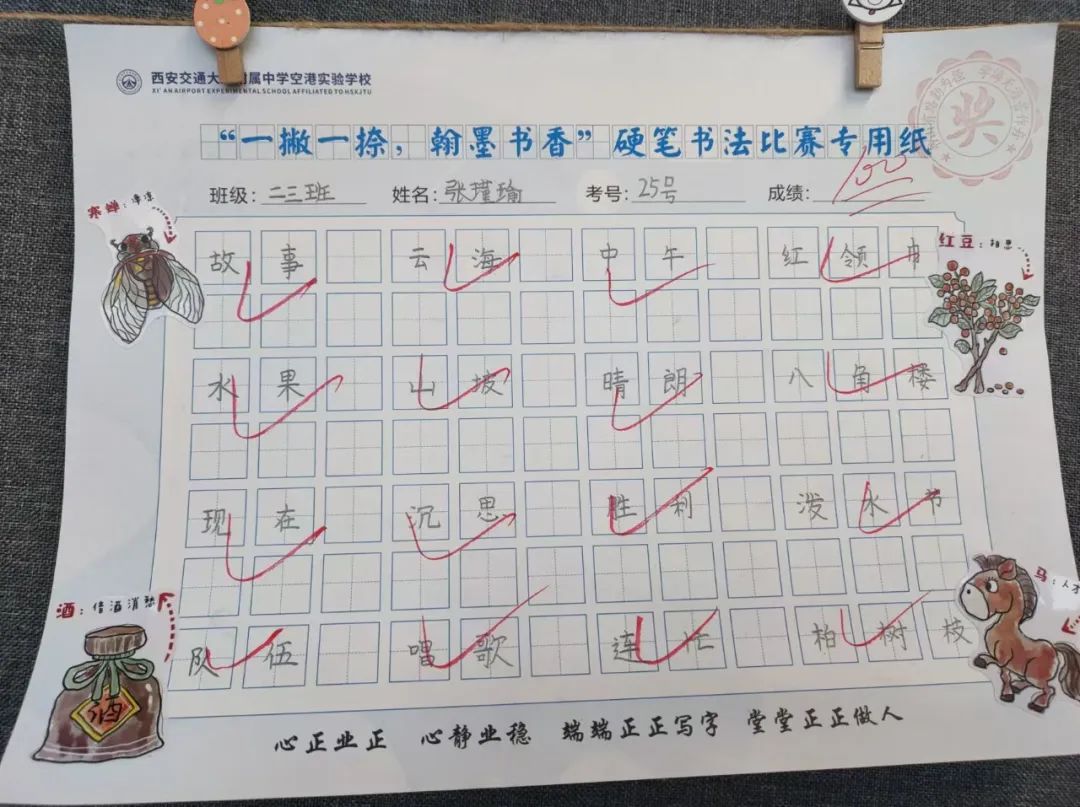 西安交通大附属中学空港实验学校
XI'AN AIRPORT EXPERIMENTAL SCHOOL AFFILIATED TO HSKJTU
“一撇一捺，翰墨书香”硬笔书法比赛专用纸
奖
班级：二三班 姓名：张瑾瑜 考号：25号 成绩：100
寒蝉：凄凉
红豆：相思
故事 云海 中午 红领巾
水果 山坡 晴朗 八角楼
现在 沉思 胜利 泼水节
酒：借酒消愁
马：人才
队伍 唱歌 连忙 柏树枝
酒
心正业正 心静业稳 端端正正写字 堂堂正正做人